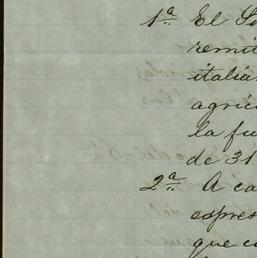 1ª El
remit
italia
agric
la fu
de 31
2ª A ca
espres
que c